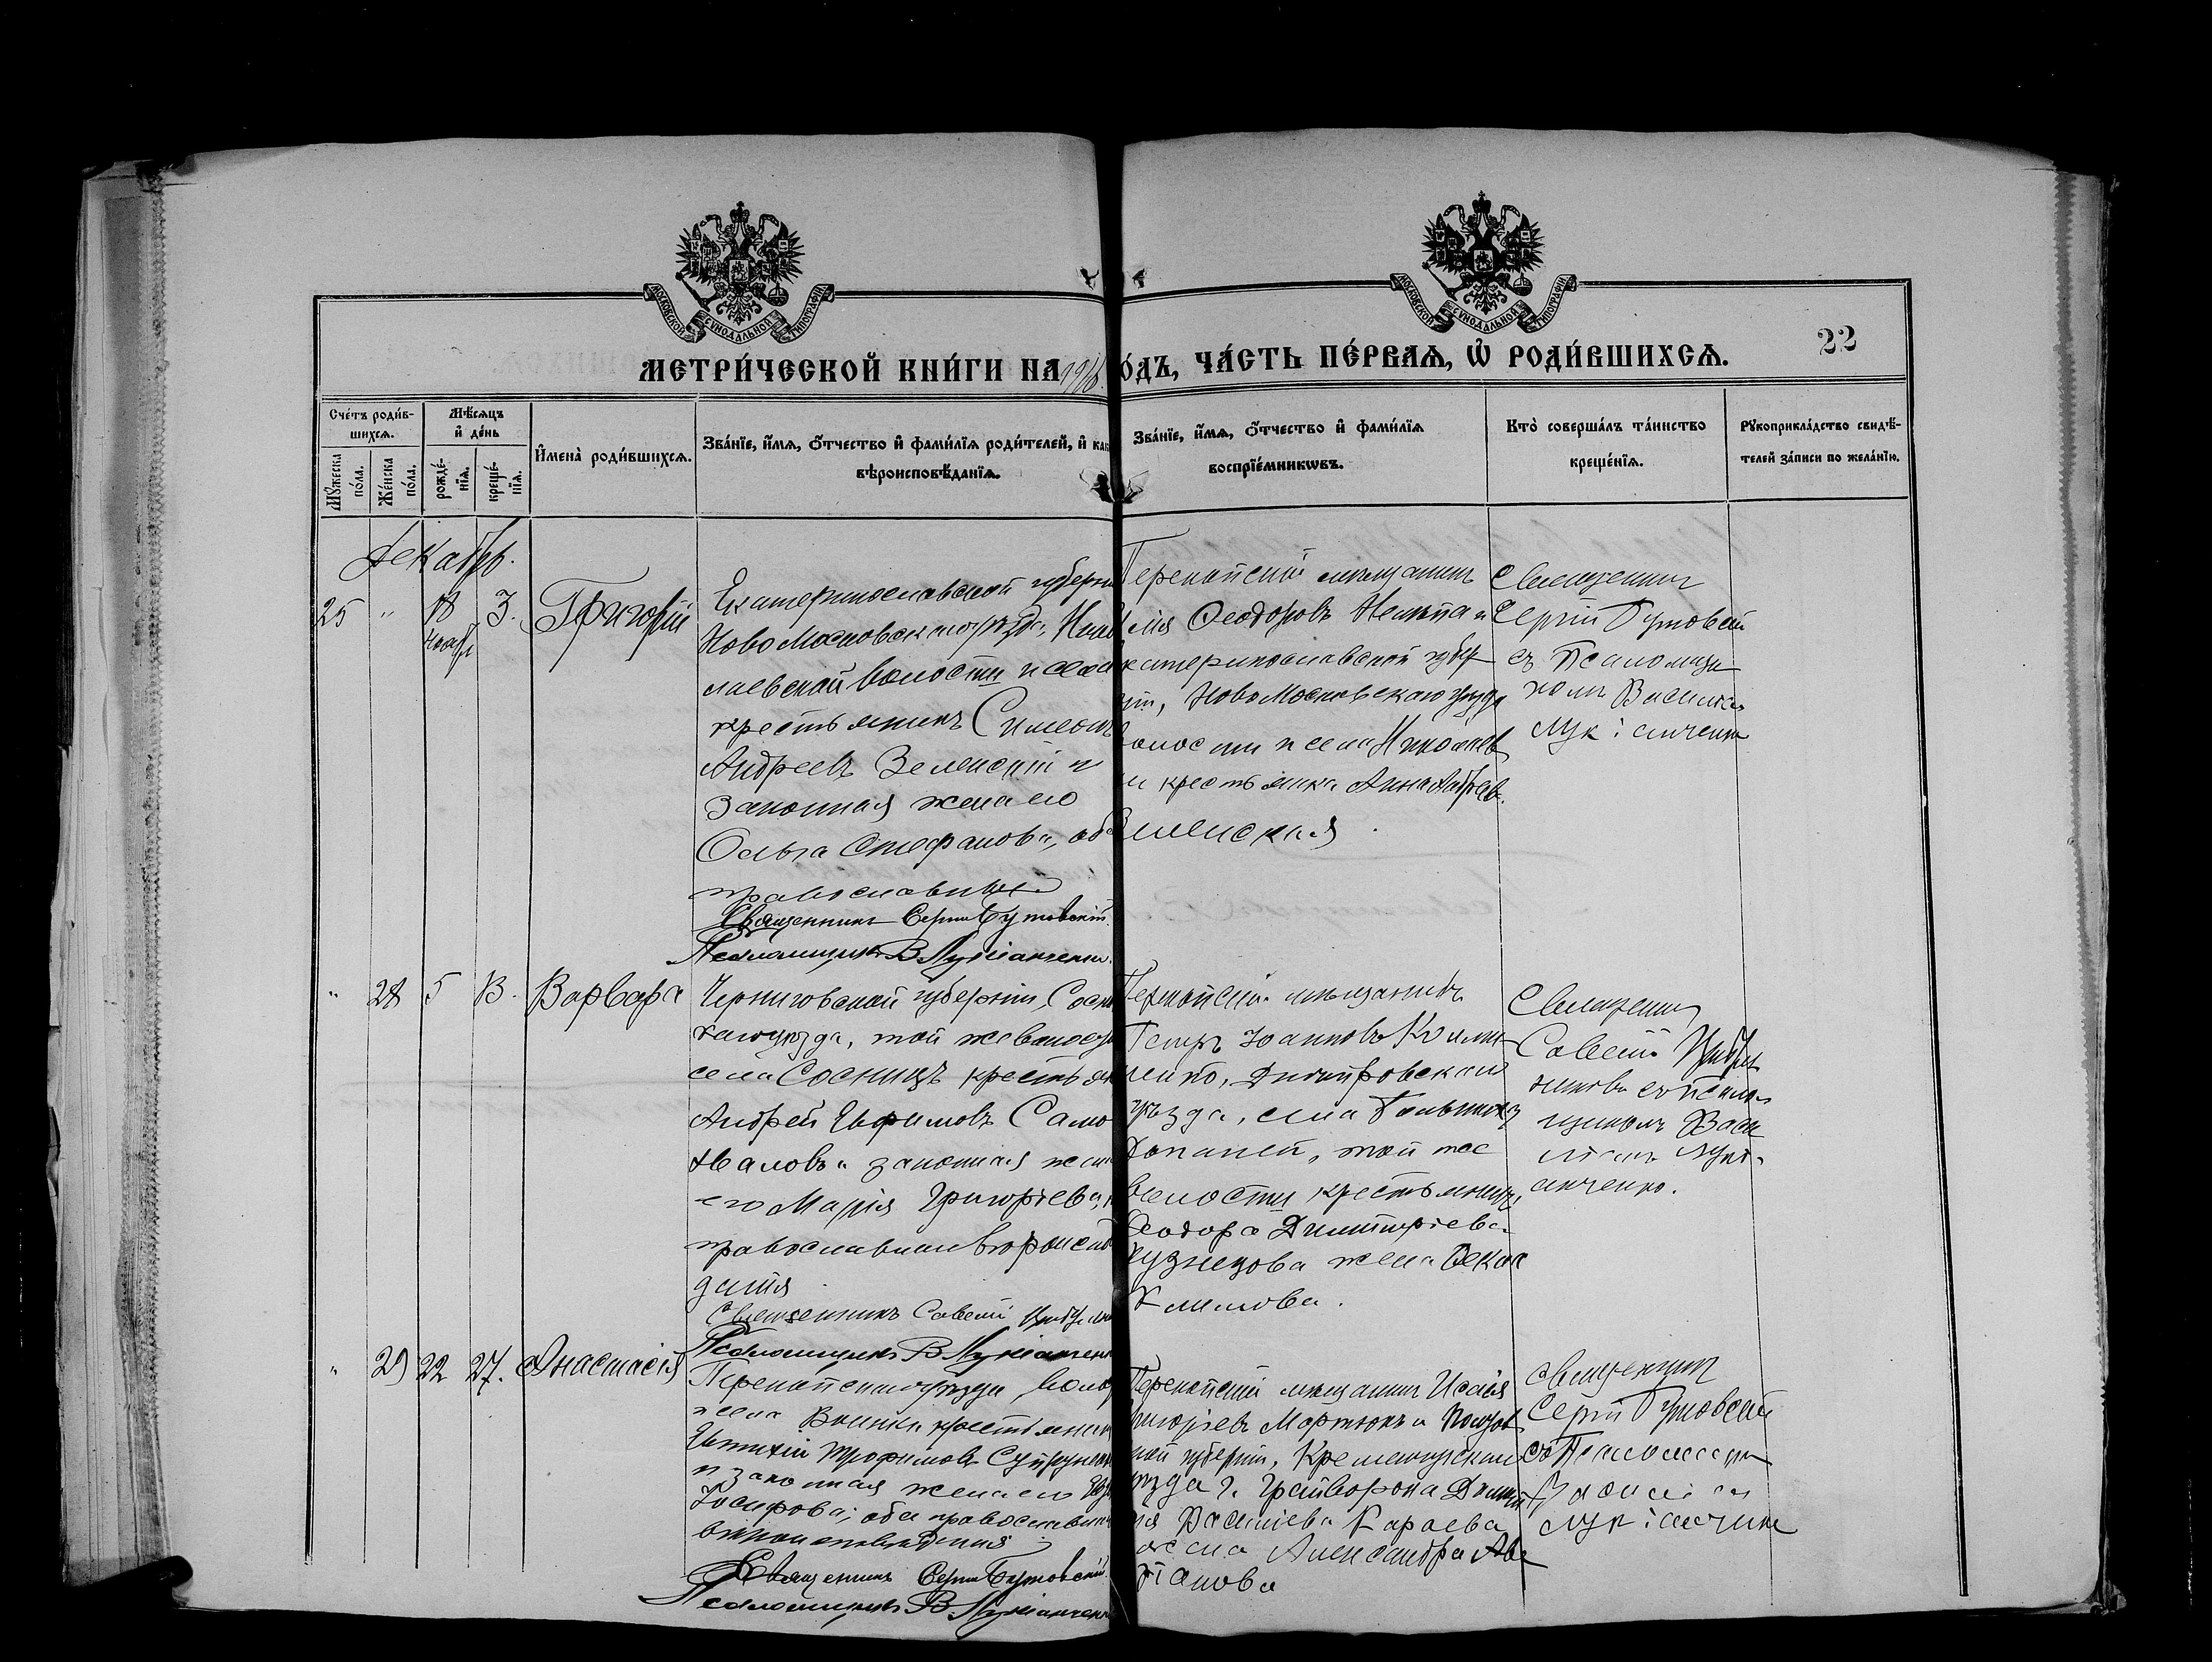 МОСКОВСКОЙ СѴНОДАЛЬНОЙ ТИПОГРАФІИ
МОСКОВСКОЙ СѴНОДАЛЬНОЙ ТИПОГРАФІИ
22
МЕТРИ́ЧЕСКОЙ КНИ́ГИ НА
О́ДЪ, ЧА́СТЬ ПЕ́РВАѦ, Ѡ҆ РОДИ́ВШИХСѦ.
Сче́тъ роди́в-
шихсѧ.
Мѣ́сѧцъ
и҆ де́нь
Мꙋ́жеска
по́ла.
Же́нска
по́ла.
рожде́-
нїѧ.
креще́-
нїѧ.
И҆мена̀ роди́вшихсѧ.
Зва́нїе, и҆́мѧ, ѻ҆́тчество и҆ фами́лїѧ роди́телей, и҆ как
вѣроисповѣ́данїѧ.
Зва́нїе, и҆́мѧ, ѻ҆́тчество и҆ фами́лїѧ
воспрїе́мникѡвъ.
Кто̀ соверша́лъ та́инство
креще́нїѧ.
Рꙋкоприкла́дство свидѣ́-
телей за́писи по жела́нїю.
Декабрь.
25 " 18 3. Григорій
Нояб
Екатеринославской губерні
НовоМосковскаго уѣзда, Нико
лаевской волости и села
крестьянинъ Симеонъ
Андреевъ Зеленскій и
законная жена его
Ольга Стефанова, оба
православные
Священникъ Сергій Бутовскій
Псаломщикъ В Лукіанченко.
Перекопскій мѣщанинъ
Ѳеодоровъ
катеринославской губер
ніи, НовоМосковскаго уѣзда
волости и села Николаев
и крестьянка Анна Андреев.
Зеленская.
Священникъ
Сергій Бутовскій
съ Псаломщи
комъ Василіемъ
Лукіанченко
" 28 5 13. Варвара
Черниговской губерніи, Сосн
каго уѣзда, той же волости
села Сосницъ крестьян
Андрей Ефимовъ Само
и законная жена
его Марія Григорьева,
православнаго вѣроиспов
данія
Священникъ Савватій
Псаломщикъ В Лукіанченко
Перекопскій мѣщанинъ
Петръ Іоанновъ
Днѣпровскаго
уѣзда, села Большихъ
Копаней, той же
волости крестьянина,
Ѳеодора Димитріева
Кузнецова жена Ѳекла
Климова.
Священникъ
съ псалом
щикомъ Васи
ліемъ Лукі
анченко.
" 29 22 27. Анастасія
Перекопскаго уѣзда, волос
и села Воинки крестьянинъ
Евтихій Трофимовъ
и законная жена его
Іосифова; оба православнаго
вѣроисповѣданія
Священникъ Сергій Бутовскій.
Псаломщикъ В Лукіанченко
Перекопскій мѣщанинъ Исаія
Григорьевъ Мартюкъ и Полтав
ской губерніи, Кременчугскаго
уѣзда г. Грайворона
Василіева Караева
жена Александра
Священникъ
Сергій Бутовскій
съ Псаломщи
Лукіанченко